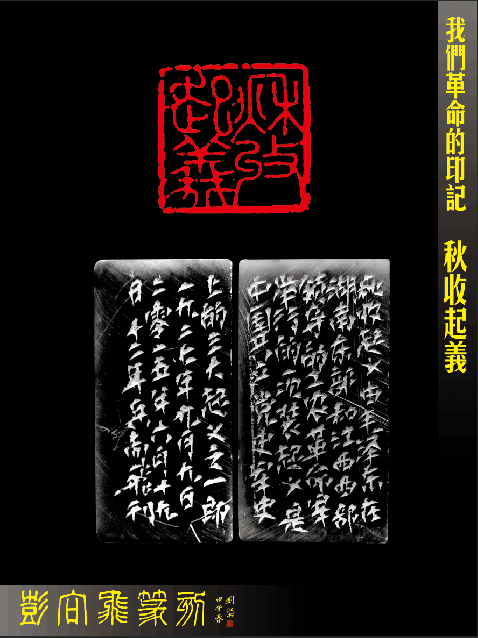 我們革命的印記 秋收起義
秋收起義
秋收起义由毛泽东在
湖南东部和江西西部
领导的工农革命军
举行的武装起义是
中国共产党史军史
上的三大起义之一即
一九二七年九月九日
二零一五年六月十九
日十二年兵向飛刊
彭向飛篆刻